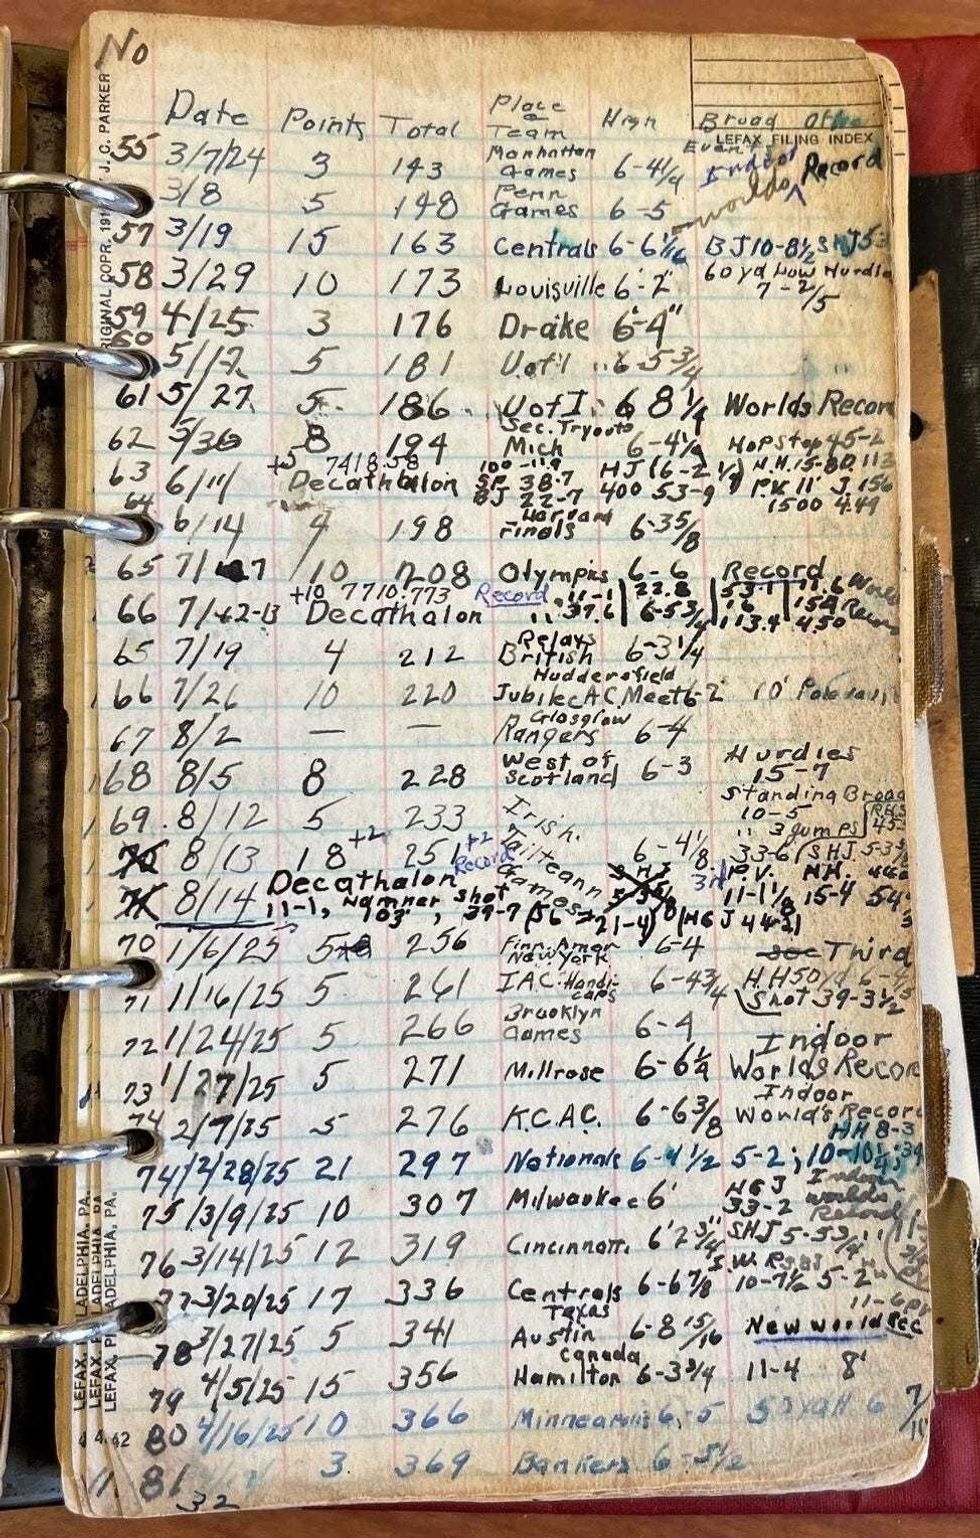 No
Date Points Total Place & Team High Broad
LEFAX FILING INDEX
Events
55 3/7/24 3 143 Manhattan Games 6-4 1/4 Indoor Record
3/8 5 148 Penn Games 6-5 worlds
57 3/19 15 163 Centrals 6-6 1/16 BJ 10-8 1/2 SHJ 5-3
58 3/29 10 173 Louisville 6'-2" 60 yd Low Hurdle 7-2/5
59 4/25 3 176 Drake 6'-4"
60 5/17 5 181 U of I 6-5 3/4
61 5/27 5 186 U of I 6 8 1/4 Worlds Record
62 5/30 8 194 Sec. Tryouts Mich 6-4 1/4 Hop Stop 45-2
63 6/11 +5 7418.58 Decathalon 100-11.9 HJ (6-2 1/4) H.H. 15-8 D. 113
SP 38.7 400 53-9 P.V. 11' J 156
BJ 22-7 1500 4.49
64 6/14 4 198 Harvard Finals 6-3 5/8
65 7/7 10 208 Olympics 6-6 Record
66 7/12-13 +10 7710.773 Decathalon Record 11-1 22.8 53.1 11.6 World
37.6 6-5 3/4 16 159 Record
113.4 4.50
65 7/19 4 212 Relays British 6-3 1/4
66 7/26 10 220 Huddersfield Jubilee A.C. Meet 6-2 10' Pole vault
67 8/2 — — Glosglow Rangers 6-4
168 8/5 8 228 West of Scotland 6-3 Hurdles 15-7
169 8/12 5 233 Irish Standing Broad 10-5
" 3 jumps 45
70 8/13 18 +2 251 +2 Tailteann 6-4 1/8 33-6 (SHJ. 5-3 3/4
71 8/14 Decathalon Record Games 3rd P.V. HH. 440
11-1, Hammer 103', Shot 39-7 (56 = 21-4) (HSJ 44-2) 11-1 1/8 15-4 54
70 1/6/25 5 256 Finn. Amer New York 6-4 Third
71 1/16/25 5 261 I.A.C. Handicaps 6-4 3/4 H.H 50 yd 6-4/5
Shot 39-3 1/2
72 1/24/25 5 266 Brooklyn Games 6-4
73 1/27/25 5 271 Millrose 6-6 1/4 Indoor Worlds Record
74 2/7/25 5 276 K.C.A.C. 6-6 3/8 Indoor World's Record
HH 8-3
74 2/28/25 21 297 Nationals 6-4 1/2 5-2; 10-10 1/4
75 3/9/25 10 307 Milwaukee 6' HSJ 33-2 Indoor worlds Record
76 3/14/25 12 319 Cincinnati 6'2 3/4" SHJ 5-5 3/4
77 3/20/25 17 336 Centrals 6-6 7/8 10-7 1/2 5-2
11-6 pv
78 3/27/25 5 341 Texas Austin 6-8 15/16 New world Rec
79 4/5/25 15 356 Canada Hamilton 6-3 3/4 11-4 8'
80 4/16/25 10 366 Minneapolis 6-5 50 yd H 6 7/10
81 3 369 Bankers 6-5 1/2
32
ORIGINAL COPR. 191 J. C. PARKER
LEFAX, PHILADELPHIA, PA.